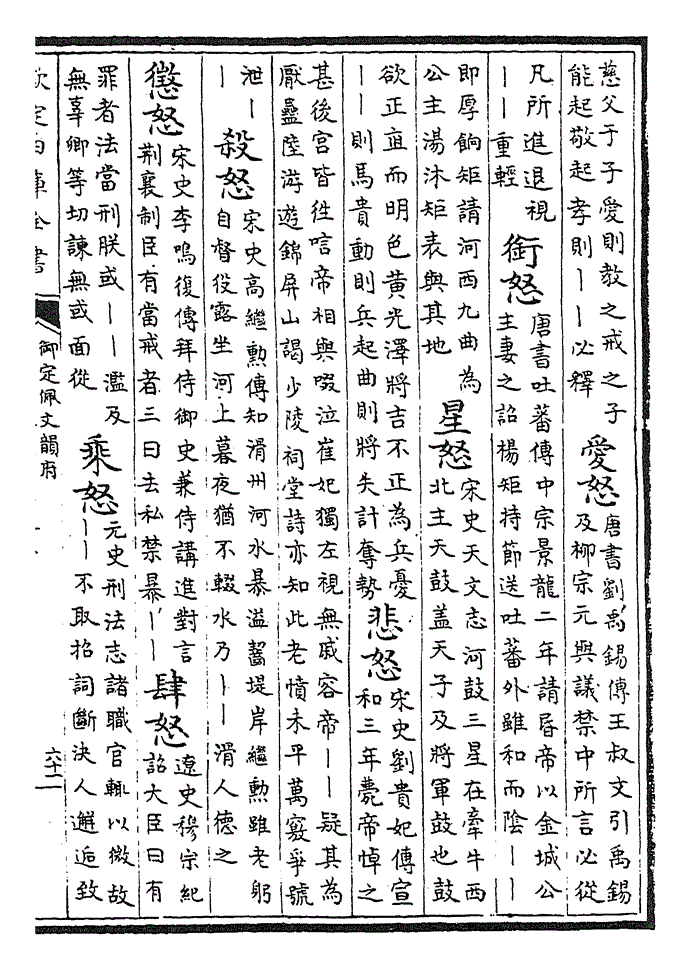 慈父于子愛則教之戒之子
能起敬起孝則――必釋
愛怒
唐書劉禹錫傳王叔文引禹錫
及柳宗元與議禁中所言必從
凡所進退視
――重輕
銜怒
唐書吐蕃傳中宗景龍二年請昏帝以金城公
主妻之詔楊矩持節送吐蕃外雖和而陰――
即厚餉矩請河西九曲為
公主湯沐矩表與其地
星怒
宋史天文志河鼓三星在牽牛西
北主天鼓盖天子及將軍鼓也鼓
欲正直而明色黄光澤將吉不正為兵憂
――則馬貴動則兵起曲則將失計奪勢
悲怒
宋史劉貴妃傳宣
和三年薨帝悼之
甚後宮皆往唁帝相與啜泣崔妃獨左視無戚容帝――疑其為
厭蠱陸游遊錦屏山謁少陵祠堂詩亦知此老憤未平萬竅爭號
泄―
―
殺怒
宋史高繼勳傳知滑州河水暴溢齧堤岸繼勳雖老躬
自督役露坐河上暮夜猶不輟水乃――滑人德之
懲怒
宋史李鳴復傳拜侍御史兼侍講進對言
荆襄制臣有當戒者三曰去私禁暴――
肆怒
遼史穆宗紀
詔大臣曰有
罪者法當刑朕或――濫及
無辜卿等切諫無或面從
乘怒
元史刑法志諸職官輒以微故
――不取招詞斷決人邂逅致
欽定四庫全書
御定佩文韻府